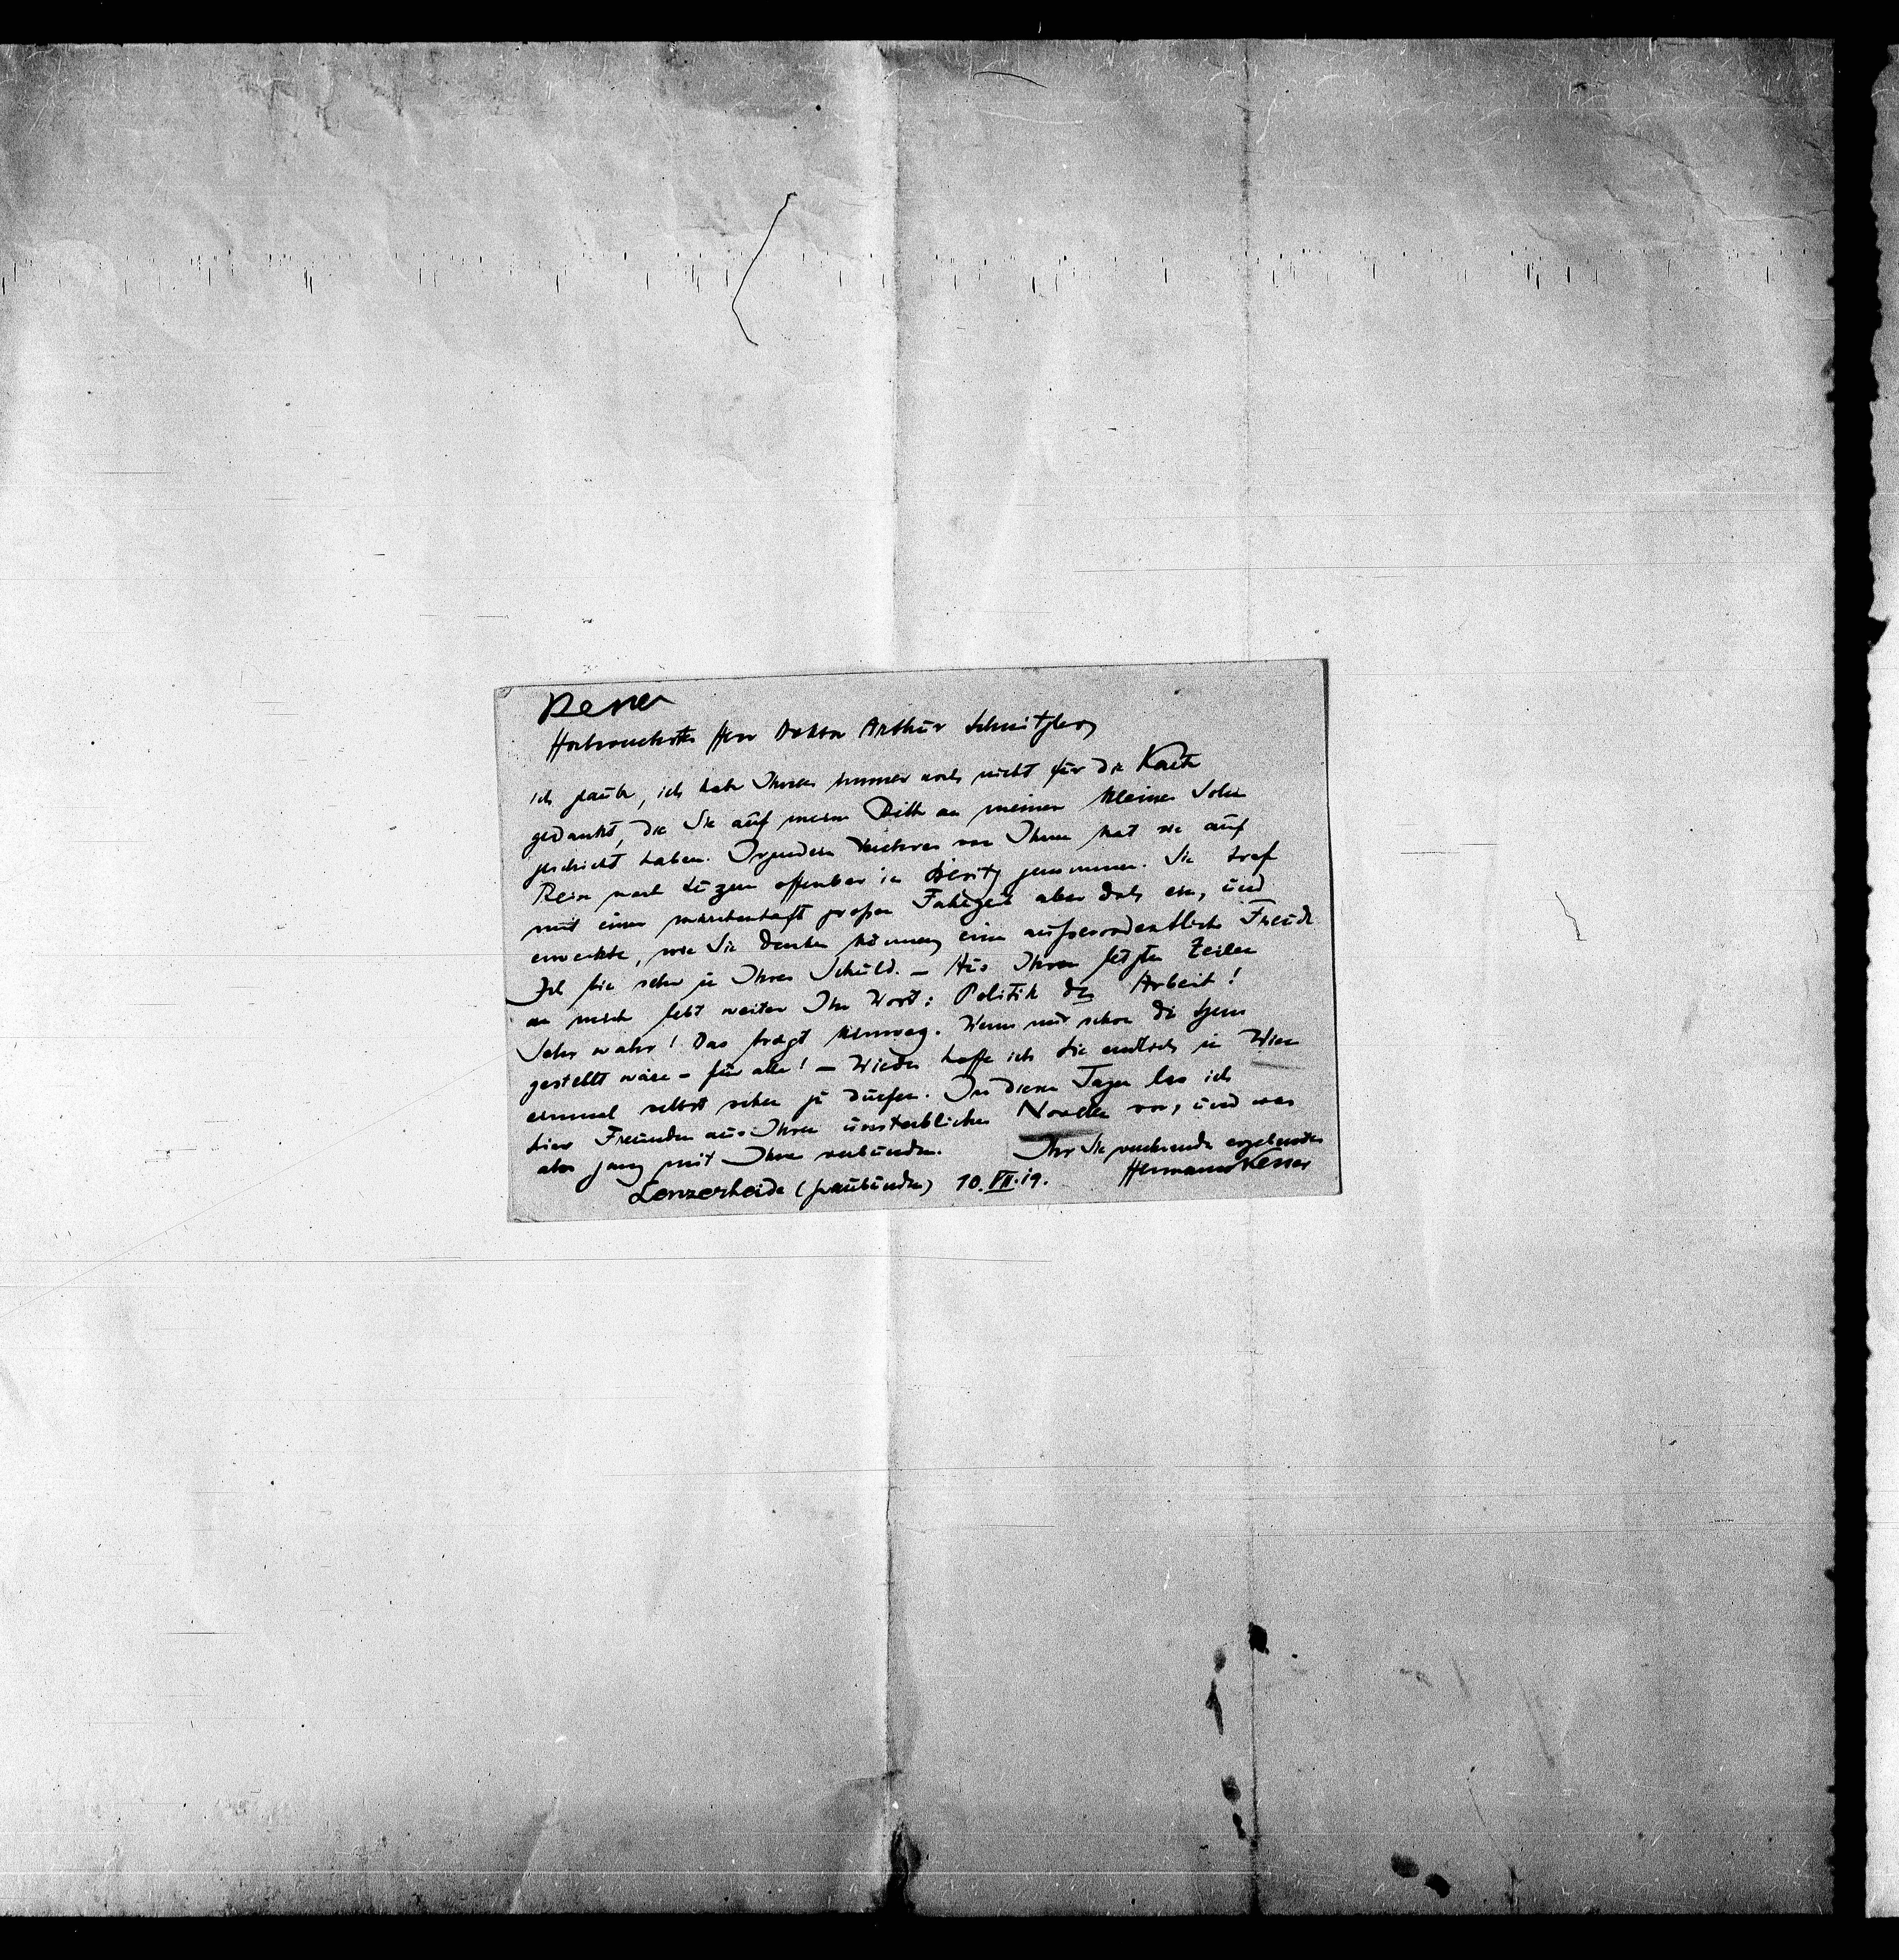 Kesser
Hochverehrter Herr Doktor Arthur Schnitzler,
ich glaube, ich habe Ihnen immer noch nicht für die Karte
gedankt, die Sie auf meine Bitte an meinen kleinen Sohn
geschickt haben. Irgendein Verehrer von Ihnen hat sie auf
Reise nach Luzern offenbar in Besitz genommen. Sie traf
mit einer märchenhaft großen Fahrzeit aber doch ein, und
erweckte, wie Sie denken können, eine außerordentliche Freude.
Ich bin sehr in Ihrer Schuld. – Aus Ihren letzten Zeilen
an mich lebt weiter Ihr Wort: Politik der Arbeit!
Sehr wahr! Das trägt hinweg. Wenn nur schon die Szene
gestellt wäre – für alle! – Wieder hoffe ich Sie endlich in Wien
einmal selbst sehen zu dürfen. In diesen Tagen las ich
hier Freunden aus Ihren unsterblichen Novellen vor, und war
also ganz mit Ihnen verbunden. Ihr Sie verehrender ergebenster
Lenzerheide (Graubünden) 10. VII. 19. Hermann Kesser